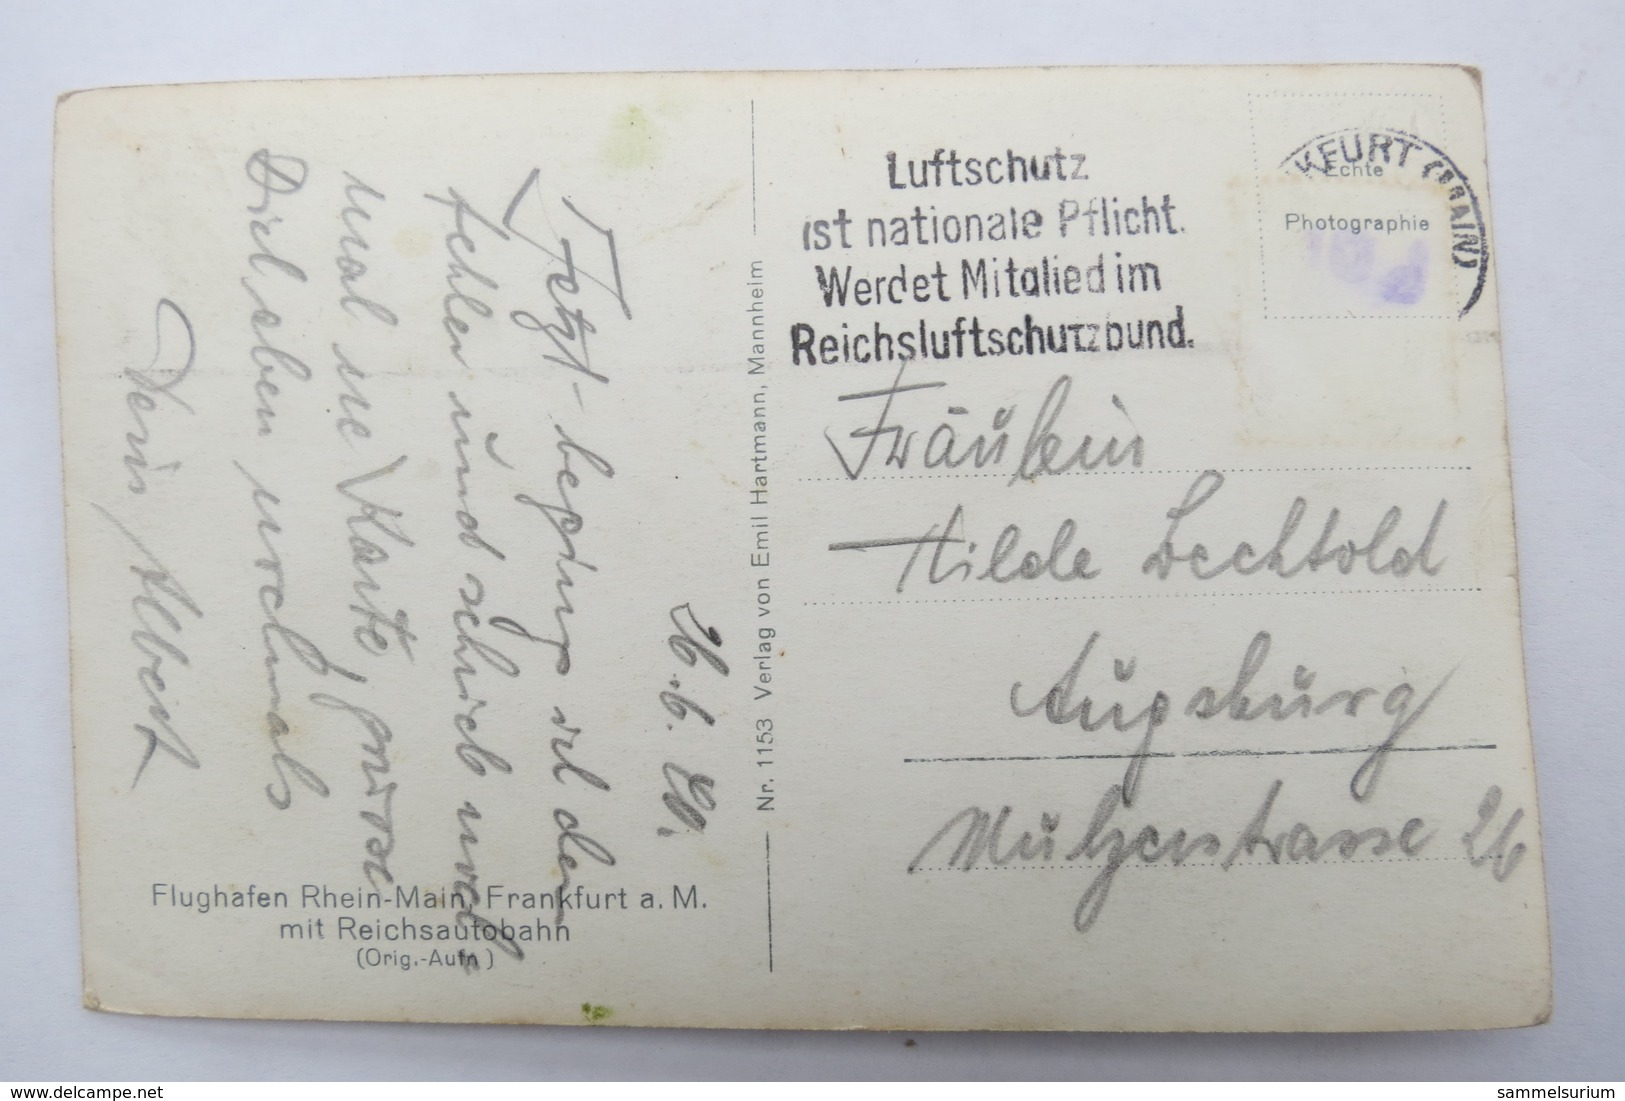 26. 6. 40.
Jetzt beging ich den
Fehler und schrieb noch
mal ne Karte, grüsse
Dich eben nochmals
Dein Albert
Flughafen Rhein-Main, Frankfurt a. M.
mit Reichsautobahn
(Orig.-Aufn.)
Nr. 1153 Verlag von Emil Hartmann, Mannheim
Luftschutz
ist nationale Pflicht.
Werdet Mitglied im
Reichsluftschutzbund.
KFURT (MAIN)
Echte
Photographie
Fräulein
Hilde Bechtold
Augsburg
strasse 26
sammelsurium